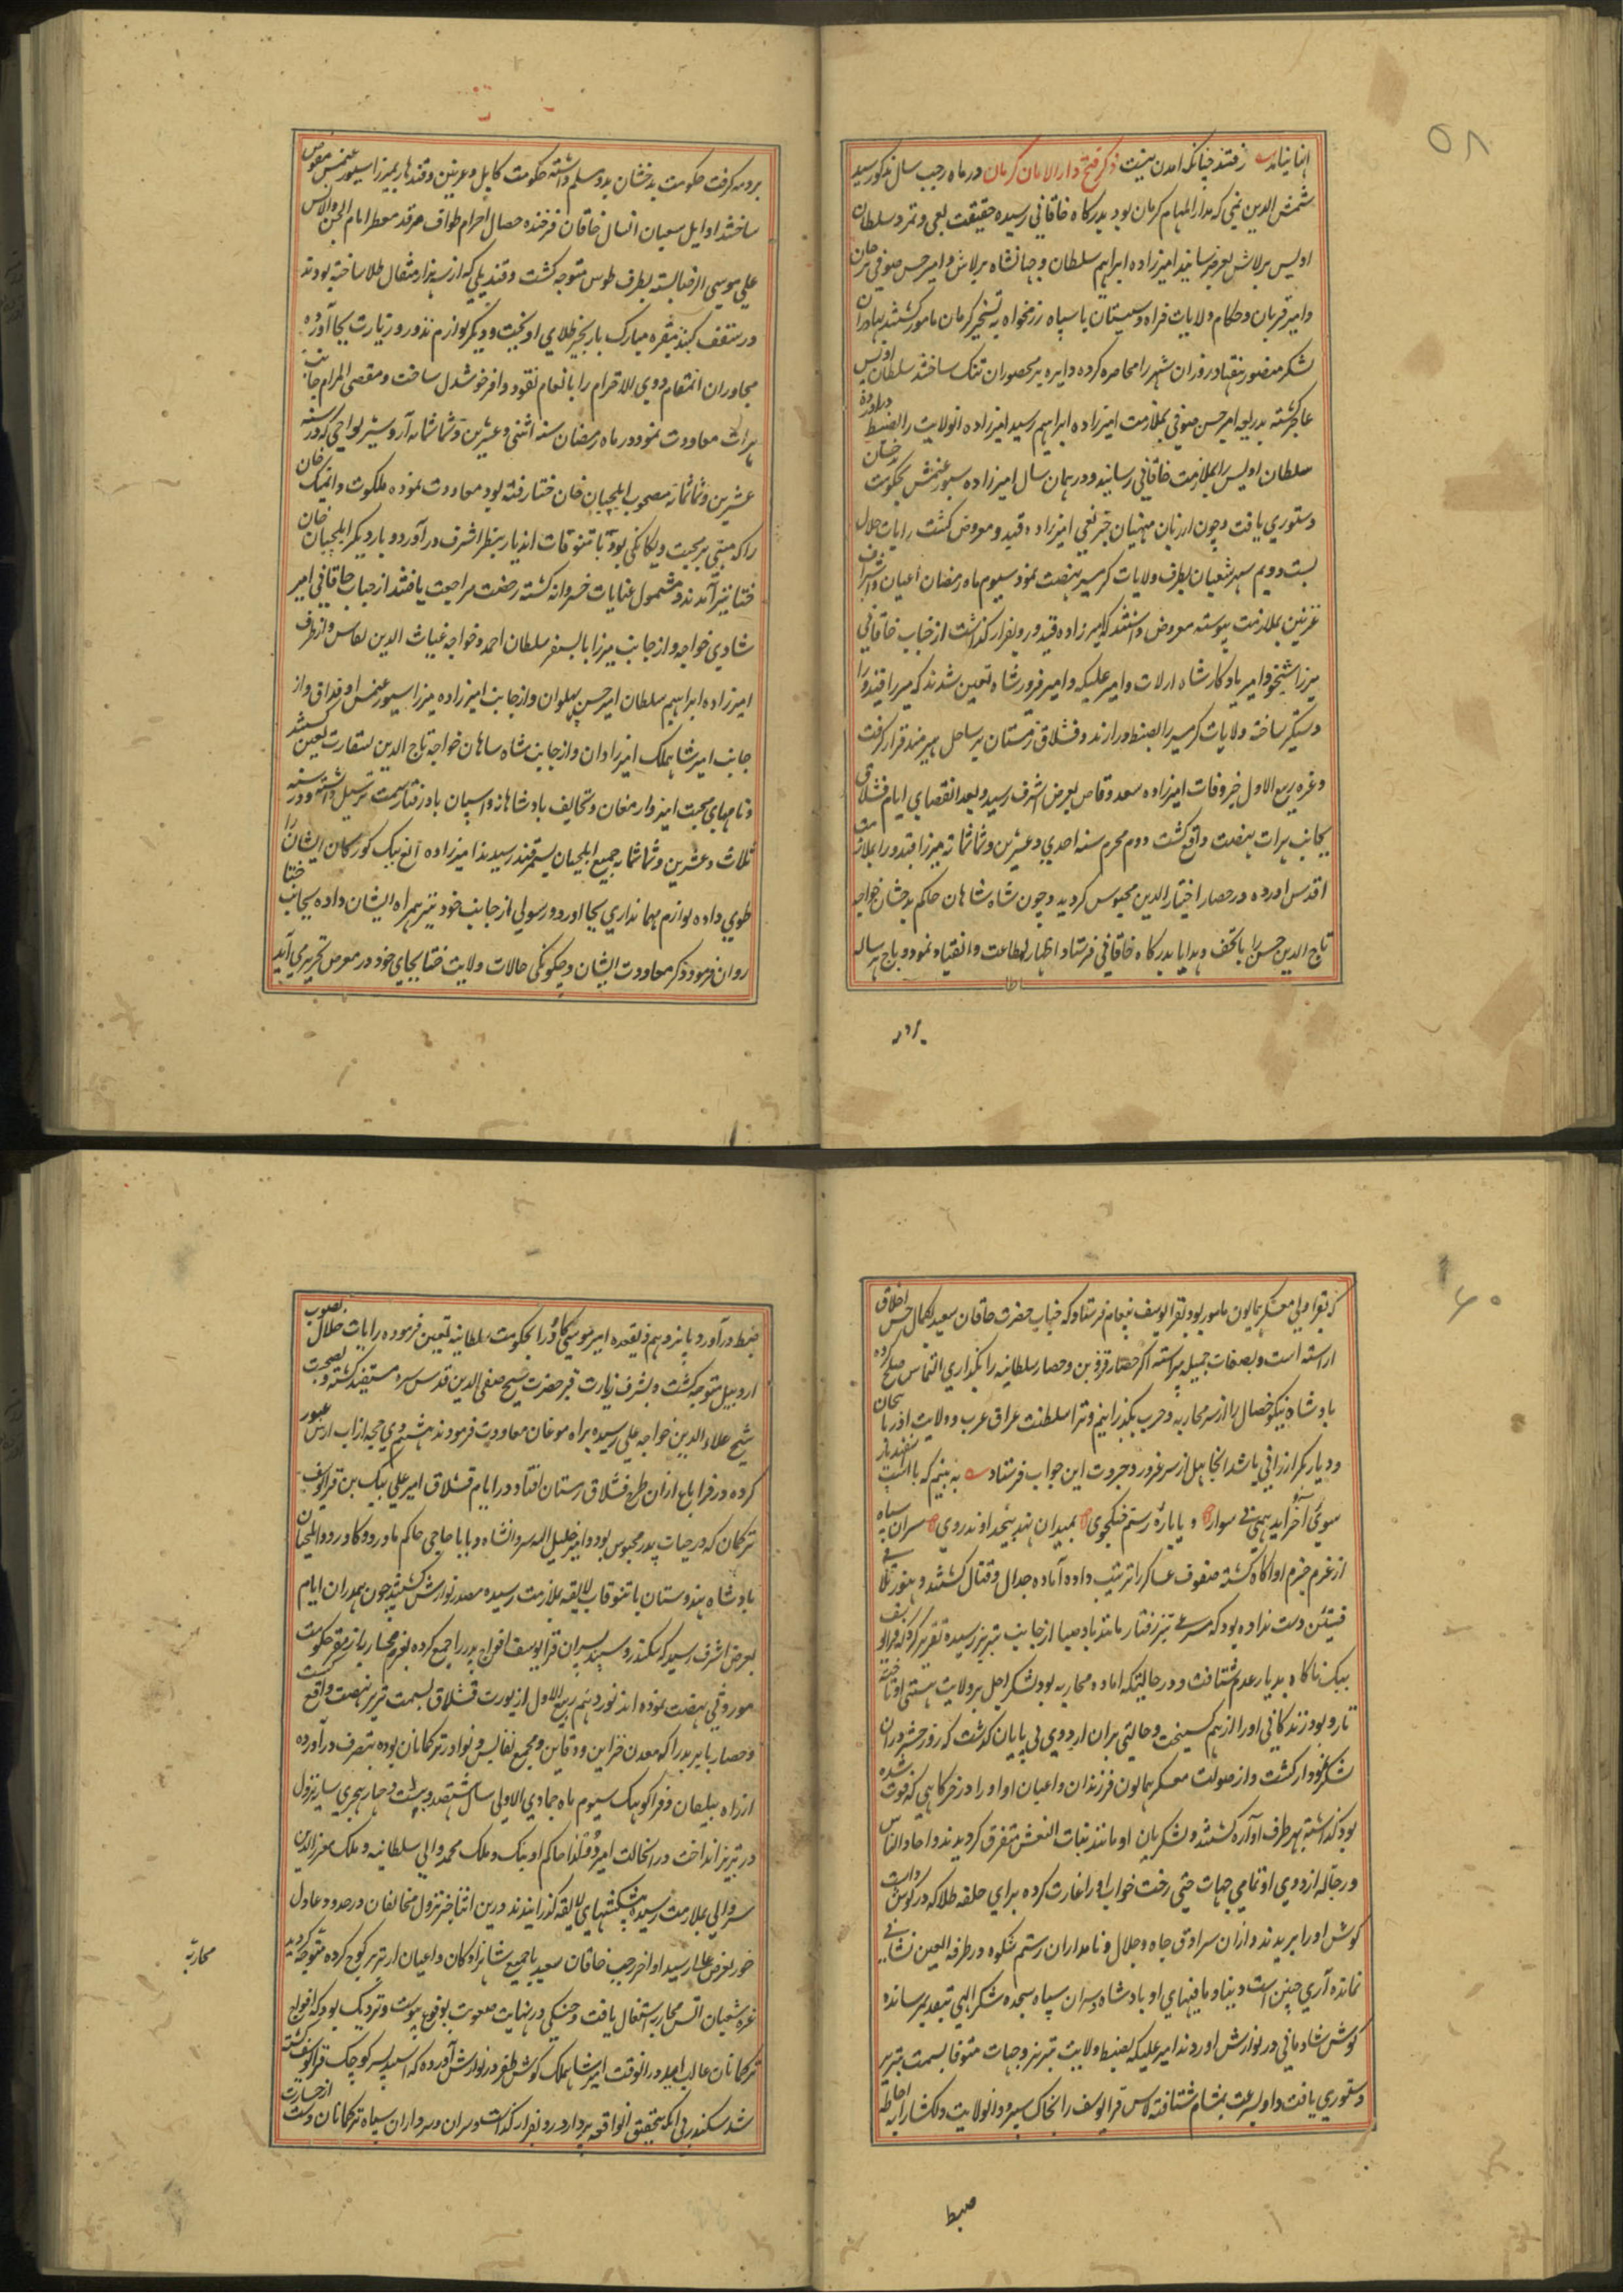 ۵۸
انبانیاند رفتند چنانکه آمدن نیست ذکر فتح دار الامان کرمان در ماه رجب سال مذکور سید
شمس الدین بمی که مدار المهام کرمان بود بدرگاه خاقانی رسیده حقیقت بغی و تمرد سلطان
اویس برلاش بعرض رسانید امیرزاده ابراهیم سلطان و جهانشاه برلاش و امیر حسن صوفی ترخان
و امیر قربان و حکام ولایات فراه و سیستان با سپاه رزمخواه به تسخیر کرمان مامور گشتند بهادران
لشکر منصور هفتاد روز آن شهر را محاصره کرده دایره بر محصوران تنک ساختند سلطان اویس
عاجز گشته بدریعه امیر حسن صوفی بملازمت امیرزاده ابراهیم رسید امیرزاده آنولایت را بضبط درآورده
سلطان اویس را بملازمت خاقانی رسانید و در همان سال امیرزاده سیورغتمش بحکومت بدخشان
دستوری یافت و چون از زبان منهیان خبر بغی امیرزاده قیدو معروض گشت رایات جلال
بیست و دویم شهر شعبان بطرف ولایات گرمسیر نهضت نمود سیوم ماه رمضان اعیان و اشراف
غزنین بملازمت پیوسته معروض داشتند که امیرزاده قیدو رو بفرار گذاشت از جناب خاقانی
میرزا شیخو و امیر یادکار شاه ارلات و امیر علیکه و امیر فیروز شاه تعیین شدند که میرزا قیدو را
دستگیر ساخته ولایات گرمسیر را بضبط درآرند و قشلاق زمستان بر ساحل هیرمند قرار گرفت
و غره ربیع الاول خبر وفات امیرزاده سعد وقاص بعرض اشرف رسید و بعد انقضای ایام قشلاق
بجانب هرات نهضت واقع گشت دوم محرم سنه احدی و عشرین و ثمانمائه میرزا قیدو را بملازمت
اقدس آورده در حصار اختیار الدین محبوس گردید و چون شاه شاهان حاکم بدخشان خواجه
تاج الدین حسن را با تحف و هدایا بدرگاه خاقانی فرستاد اظهار اطاعت و انقیاد نمود و باج هر ساله
بر دمه
بر دمه گرفت حکومت بدخشان بدو مسلم داشته حکومت کابل و غزنین و قندهار بمیرزا سیورغتمش مفوض
ساختند اوایل شعبان آنسال خاقان فرخنده خصال احرام طواف مرقد معطر امام الجن والانس
علی موسی الرضا بسته بطرف طوس متوجه گشت و قندیلی که از سه هزار مثقال طلا ساخته بودند
در سقف گنبد مقبره مبارک با زنجیر طلای آویخت و دیگر لوازم نذور و زیارت بجا آورده
مجاوران آنمقام ذوی الاحترام را بانعام نقود وافر خوشدل ساخت و مقضی المرام جانب
هرات معاودت نمود در ماه رمضان سنه اثنی و عشرین و ثمانمائه آردوشیر تواچی که در سنه
عشرین و ثمانمائه مصحوب ایلچیان خان ختا رفته بود معاودت نموده ملکوت دایمنک خان
را که مبنی بر محبت و یکانکی بود با تنوقات اندیار بنظر اشرف درآورد و بار دیگر ایلچیان خان
ختا نیز آمدند و مشمول عنایات خسروانه گشته رخصت مراجعت یافتند از جناب خاقانی امیر
شادی خواجه و از جانب میرزا بایسنغر سلطان احمد و خواجه غیاث الدین نقاش و از طرف
امیرزاده ابراهیم سلطان امیر حسن پهلوان و از جانب امیرزاده میرزا سیورغتمش اوقداق و از
جانب امیر شاهملک امیر اردوان و از جانب شاه شاهان خواجه تاج الدین بسفارت تعیین گشتند
و نامهای محبت آمیز و ارمغان و تحایف بادشاهانه و اسپان بادرفتار سمت ترسیل داشته و در سنه
ثلاث و عشرین و ثمانمائه جمیع ایلچیان بسمرقند رسیدند امیرزاده الغ بیک گورکان ایشان را
طوی داده لوازم مهمانداری بجا آورد و رسولی از جانب خود نیز همراه ایشان داده بجانب ختا
روان فرمود ذکر معاودت ایشان و چگونگی حالات ولایت ختا بجای خود در معرض تحریر می آید
۶۰
که بقراولی معسکر همایون مامور بود بقرا یوسف پیغام فرستاد که جناب حضرت خاقان سعید بکمال حسن اخلاق
آراسته است و بصفات جمیله پیراسته اگر حصار قزوین و حصار سلطانیه را بگذاری التماس صلح کرده
بادشاه نیکو خصال را از سر محاربه و حرب بگذرانیم و ترا سلطنت عراق عرب و ولایت اذربایجان
و دیار بکر ارزانی باشد آنجاهل از سر غرور و جبروت این جواب فرستاد به بینم که با اسپ اسفندیار
سوی آخر آید همی بی سوار و یا باره رستم جنگجوی بمیدان نهد بیخداوند روی سران سپاه
از عزم جزم او آگاه گشته صفوف عساکر را ترتیب داده آماده جدال و قتال گشتند و هنوز تلاقی
فیئتین دست نداده بود که مسرعی تیز رفتار مانند باد صبا از جانب تبریز رسیده تقریر کرد که قرا یوسف
بیک ناکاه بدیار عدم شتافت و در حالتیکه آماده محاربه بود لشکر اجل بر ولایت هستی او تاخته
تار و پود زندگانی او را از هم گسیخت و حالتی بر آن اردوی بی پایان گذشت که روز حشر در آن
لشکر نمودار گشت و از صولت معسکر همایون فرزندان و اعیان او او را در خرگاهی که فوت شده
بود گذاشته بهر طرف آواره گشتند و لشکریان او مانند بنات النعش متفرق گردیدند و آحاد الناس
و رجاله اردوی او تمامی جهات حتی رخت خواب او را غارت کرده برای حلقه طلا که در گوش داشت
گوش او را بریدند و از آن سرادق جاه و جلال و نامداران رستم شکوه در طرفه العین نشانی
نمانده آری چنین است دنیا و مافیهای او بادشاه و سران سپاه سجده شکر الهی بتقدیم رسانده
کوس شادمانی در نوازش آوردند امیر علیکه بضبط ولایت تبریز و جهات متوفا بسمت تبریز
دستوری یافت و او بسرعت بشام شتافته لاس قرا یوسف را بخاک سپرد و آنولایت دلکشا را باحاطه
ضبط
ضبط درآورد پانزدهم ذیقعده امیر موسی کا ور را بحکومت سلطانیه تعیین فرموده رایات جلال بصوب
اردبیل متوجه گشت و بشرف زیارت قبر حضرت شیخ صفی الدین قدس سره مستفید گشته و بصحبت
شیخ علاء الدین خواجه علی رسیده براه موغان معاودت فرمودند هشتم ذی حجه از آب ارس عبور
کرده در قراباغ اران طرح قشلاق زمستان افتاد در ایام قشلاق امیر علی بیک بن قرا یوسف
ترکمان که در حیات پدر محبوس بود و امیر خلیل الله شروانشاه و بابا حاجی حاکم گاورود و ایلچیان
بادشاه هندوستان با تنوقات لایقه بملازمت رسیده مصدر نوازش گشتند چون همدران ایام
بعرض اشرف رسید که سکندر و سپند پسران قرا یوسف افواج پدر را جمع کرده بعزم محاربه از مقر حکومت
موروثی نهضت نموده اند نوزدهم ربیع الاول از یورت قشلاق بسمت تبریز نهضت واقع گشت
و حصار بایزید را که معدن خزاین و دفاین و مجمع نفایس و نوادر ترکمانان بوده بتصرف درآورده
از راه بیلقان و قراکوهک سیوم ماه جمادی الاولی سال هشتصد و بیست و چهار هجری سایه نزول
در تبریز انداخت در آنحالت امیر دولدا حاکم اونیک و ملک محمد والی سلطانیه و ملک معز الدین
سر والی بملازمت رسیده پیشکشهای لایقه گذرانیدند درین اثنا خبر نزول مخالفان در حدود عادل
خور بعرض علیا رسید اواخر رجب خاقان سعید با جمیع شاهزادگان و اعیان از تبریز کوچ کرده متوجه محاربه گردید
غره شعبان آتش محاربه اشتعال یافت و جنگی در نهایت صعوبت بوقوع پیوست و نزدیک بود که افواج
ترکمانان غالب آید در آنوقت امیر شاهملک کوس ظفر در نوازش آورده که اسپند پسر کوچک قرا یوسف کشته
شد سکندر بی آنکه بتحقیق آنواقعه پردازد رو بفرار گذاشت و سران و سرداران سپاه ترکمانان دست از جسارت